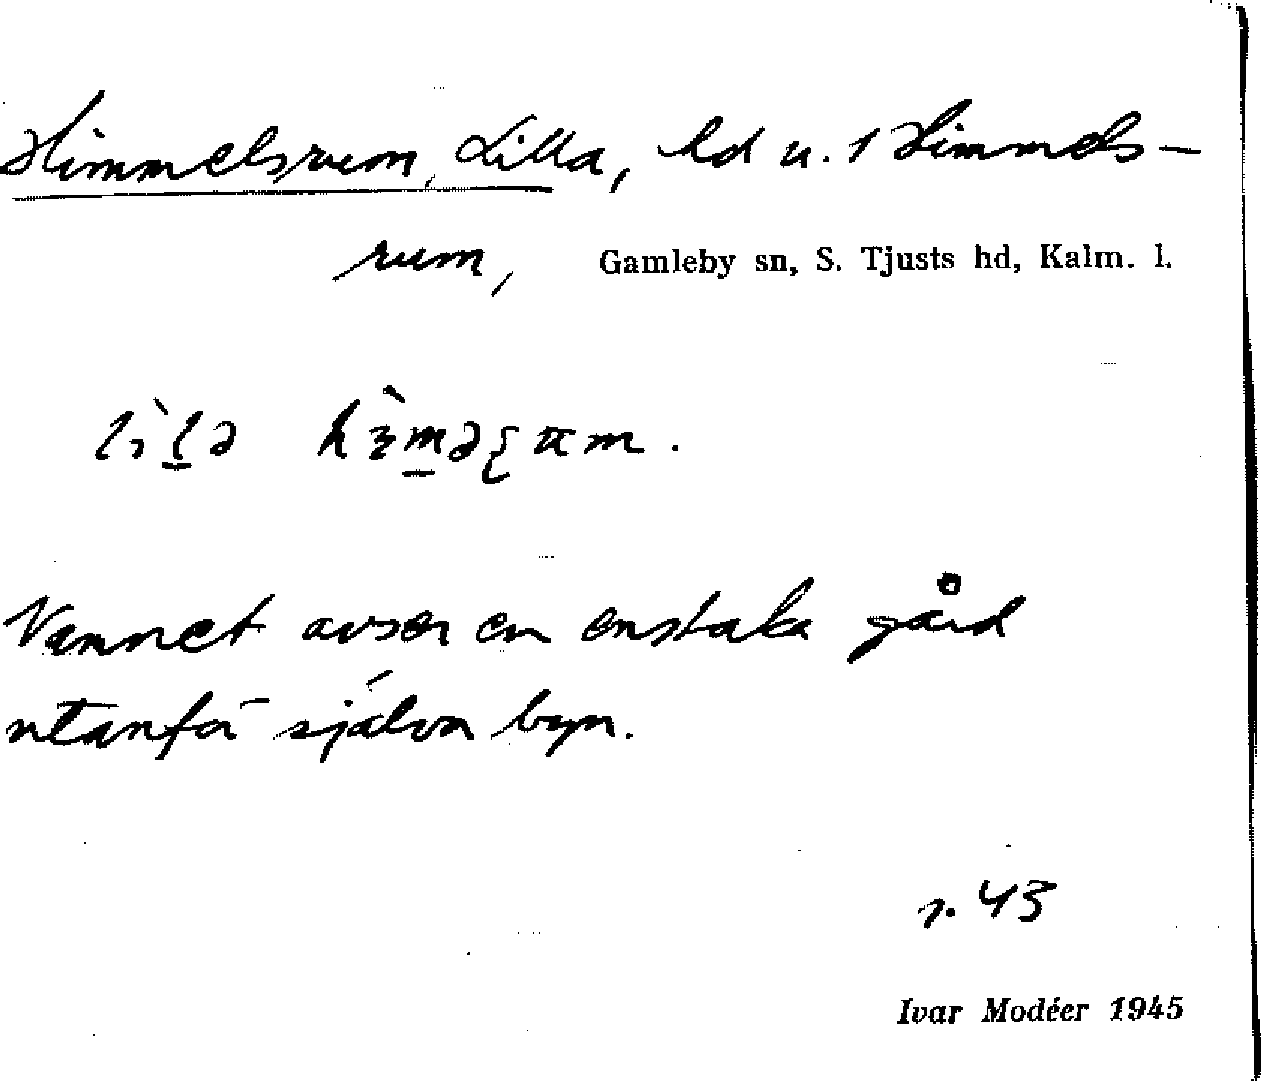 Himmelsrum, Lilla, ld u. 1 Himmels-
rum, Gamleby sn, S. Tjusts hd, Kalm. l.
Namnet avser en enstaka gård
utanför själva byn.
s. 43
Ivar Modéer 1945